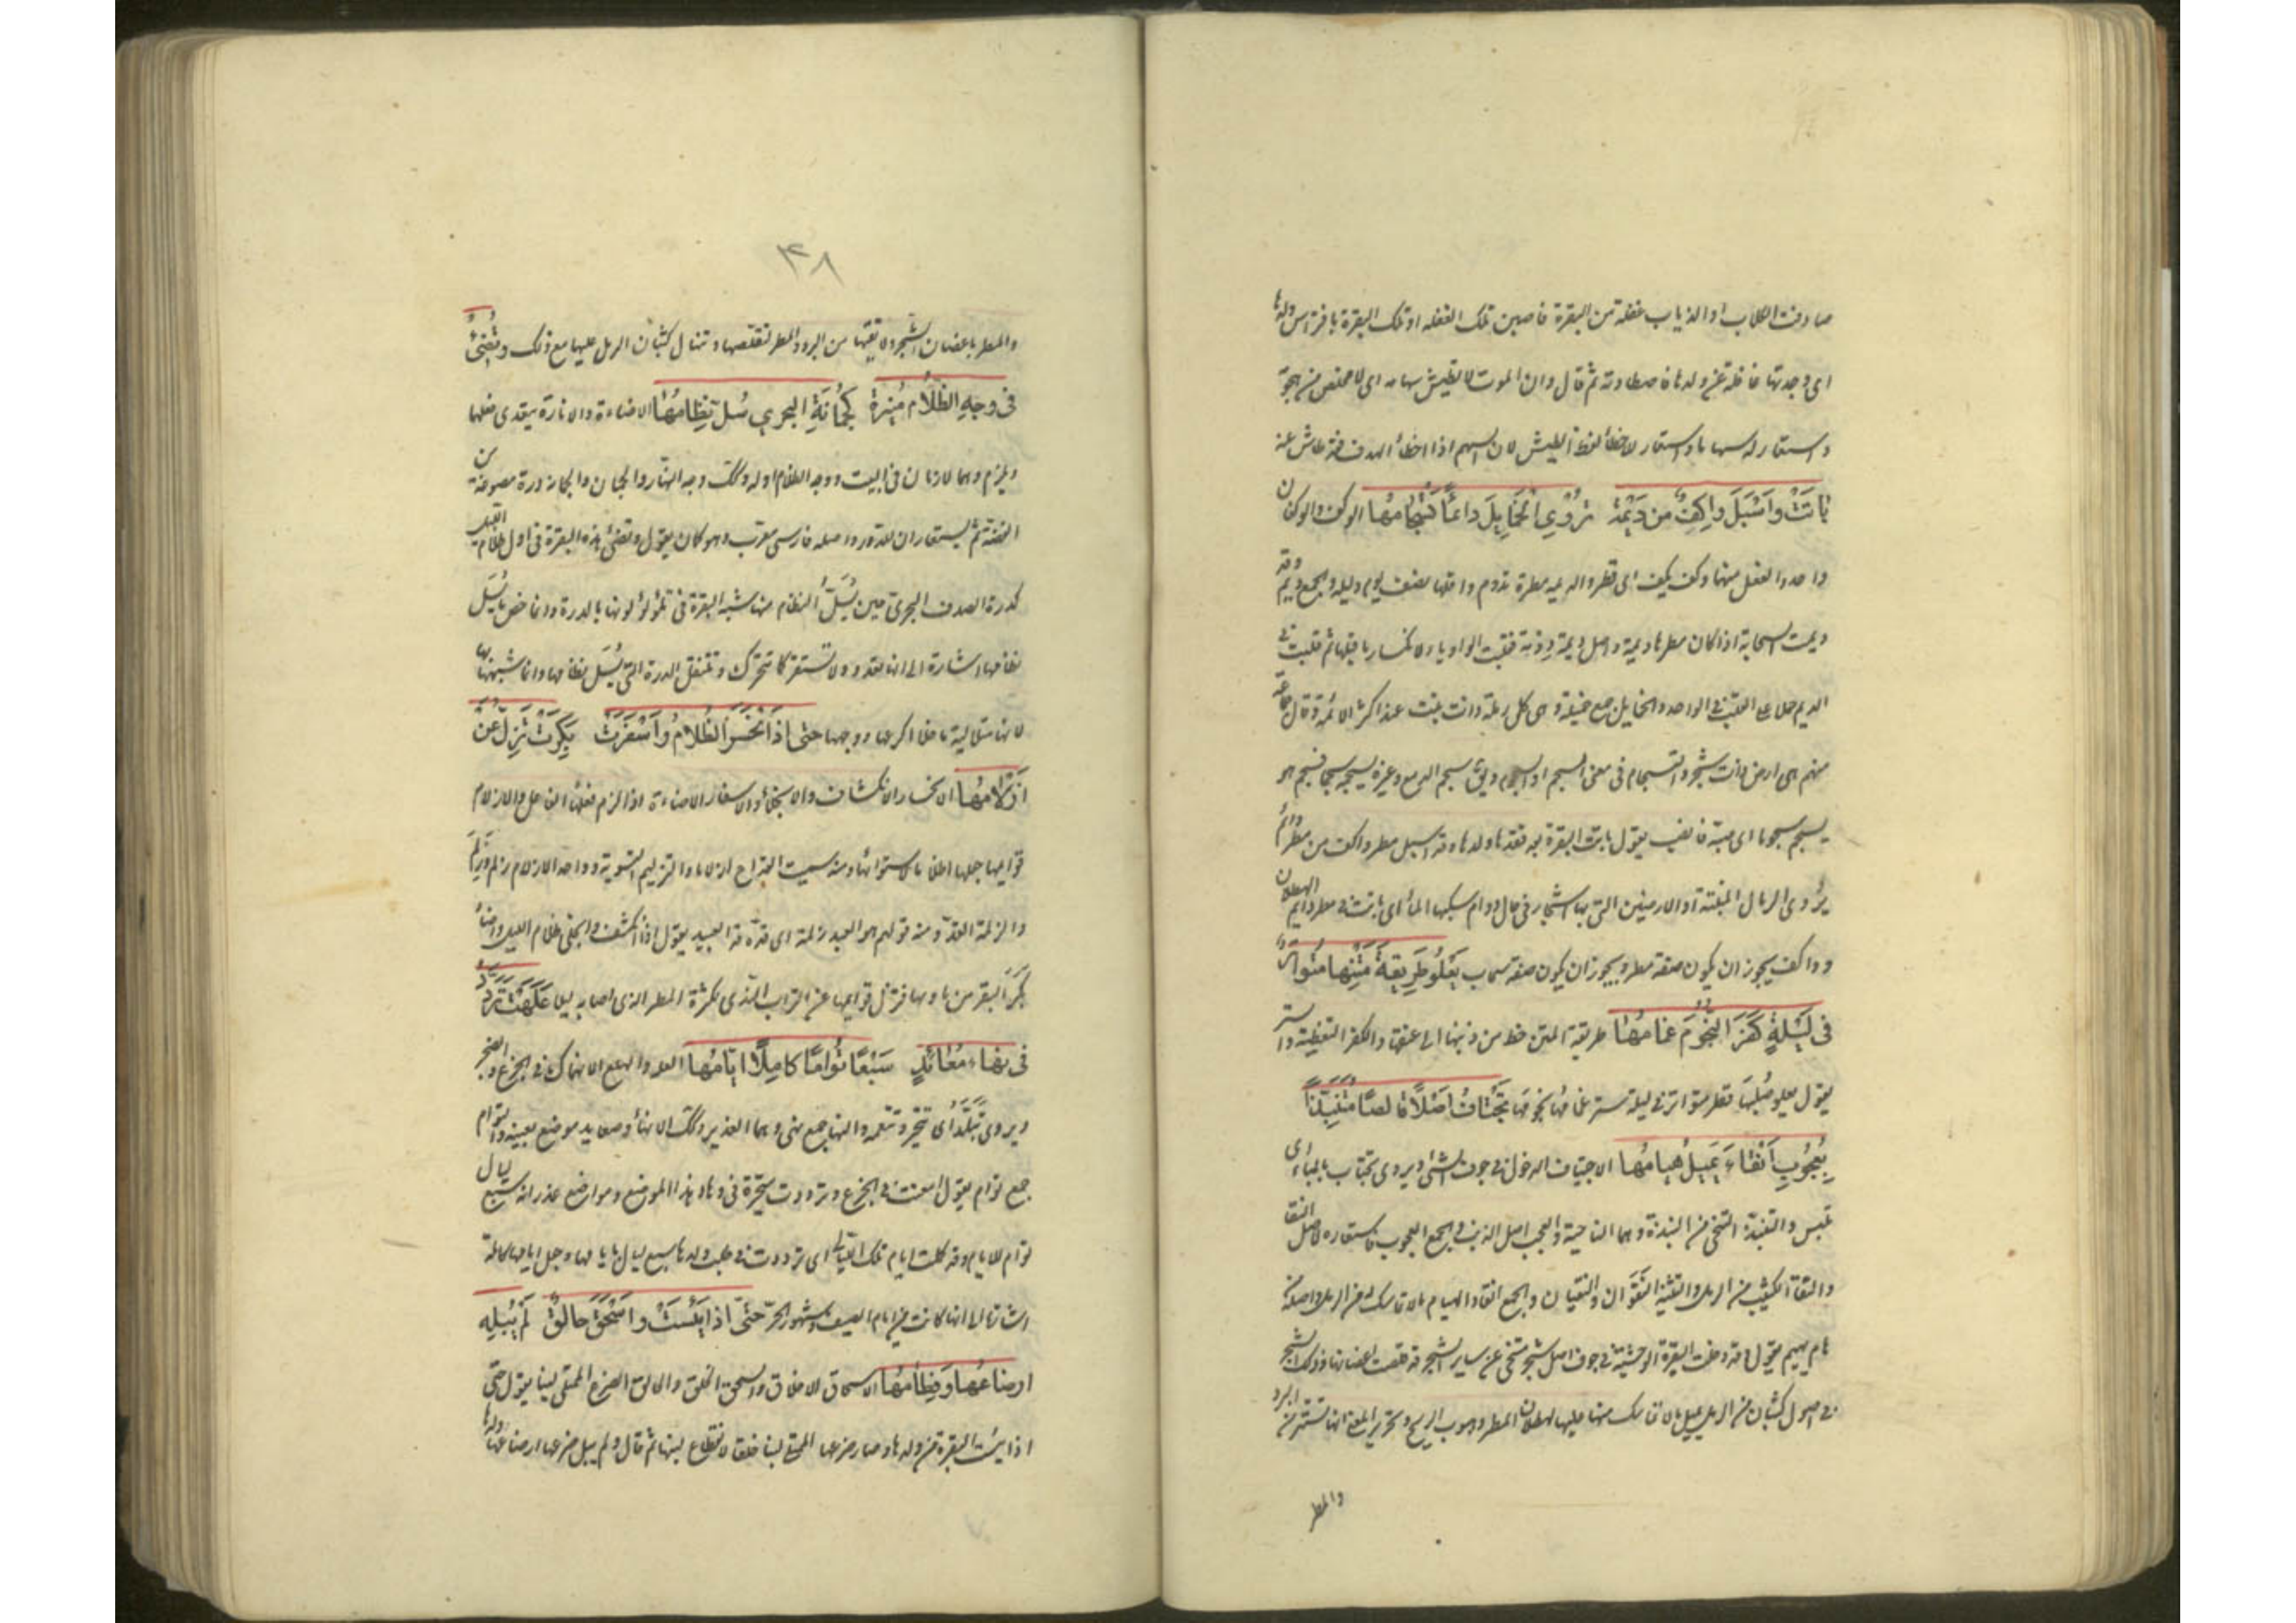 صادفت الكلاب او الذياب غفلة من البقرة فاصبن تلك الغفله او تلك البقرة بافتراس ولدها
اى وجدتها غافلة عن ولدها فاصطادته ثم قال وان الموت لا تطيش سهامه اى لا مخلص من هجوم
واستعار له سهاما واستعار للاخطاء لفظ الطيش لان السهم اذا اخطأ الهدف فقد طاش عنه
بَاتَتْ وَاَسْبَلَ وَاكِفٌ مِن دَيْمَةٍ يُرْوِي الْخَمَايِلَ دَائمًا تَسْجَامُهَا الوكف والوكفان
واحد والفعل منهما وكف يكف اى قطر والديمه مطرة تدوم واقلها نصف يوم وليله والجمع ديم وقد
ديمت السحابة اذا كان مطرها ديمة واصل ديمة دومة فقلبت الواو ياء لانكسار ما قبلها ثم قلبت فى
الديم حملا على القلب فى الواحد والخمايل جمع خميلة وهى كل رملة ذات نبت عند اكثر الائمة وقال جماعة
منهم هى ارض ذات شجر والتسجام فى معنى السجم او السجوم ويق سجم الدمع وغيره يسجمه سجما فسجم هو
يسجم سجوما اى صبه فانصب يقول باتت البقرة بعد فقدها ولدها وقد اسبل مطر واكف من مطر دائم
يروى الرمال المنبتة او الارضين التى بها اشجار فى حال دوام سكبها الماء اى باتت فى مطر دايم الهطلان
وواكف يجوز ان يكون صفة مطر ويجوز ان يكون صفة سحاب يَعْلُو طَرِيقَةَ مَتْنِهَا مُتَوَاتِرٌ
فى لَيْلَةٍ كَفَرَ النُّجُومَ غَمَامُهَا طريقة المتن خط من ذنبها الى عنقها والكفر التغطية والستر
يقول يعلو صُلبَها قطر متواتر فى ليلة ستر غمامُها نجومَها تَجْتَافُ اَصْلًا قَالِصًا مُتَنَبِّذًا
بِعُجُوبِ اَنْقَاءٍ يَمِيلُ هُيَامُهَا الاجتياف الدخول فى جوف الشئ ويروى تجتاب بالباء اى
تلبس والتنبذ التنحى من النبذة وهما الناحية والعجب اصل الذنب والجمع العجوب فاستعاره لاصل النقا
والنقا الكثيب من الرمل والتثنية النَّقَوان والنقيان والجمع انقاء والهيام ما لا تماسك له من الرمل واصله من
هام يهيم يقول وقد دخلت البقرة الوحشية فى جوف اصل شجر متنحى عن ساير الشجر قد قلصت اغصانها وذلك الشجر
فى اصول كثبان من الرمل يميل ما لا تماسك منها عليها لهطلان المطر وهبوب الريح وتحرير المعنى انها تستتر من البرد
والمطر
۴۸
والمطر باغصان الشجر ولا تقيها من البرد والمطر لتقلصها وتنهال كثبان الرمل عليها مع ذلك وَتُضِئُ
فى وَجْهِ الظَّلَامِ مُنِيرَةً كَجُمَانَةِ البَحْرِيِ سُلَّ نِظَامُهَا الاضاءة والانارة يتعدى فعلهما
ويلزم وهما لازمان فى البيت ووجه الظلام اوله وكك وجه النهار والجمان والجمانة درة مصوغة من
الفضة ثم يستعاران للدرر واصله فارسى معرب وهو كمان يقول وتضئ هذه البقرة فى اول ظلام الليل
كدرة الصدف البحرى حين يُسَلُّ النظام منها شبه البقرة فى تلؤلؤ لونها بالدرة وانما خص ما يُسَلّ
نظامها اشارة الى انها تعدو ولا تستقر كما تتحرك وتنتقل الدرة التى يُسَلّ نظامها وانما شبهها بها
لانها متلالية ما خلا اكرعها ووجهها حتى اِذَا انْحَسَرَ الظَّلَامُ وَاَسْفَرَتْ بَكَرَتْ تَزِلُّ عَنْ
اَزْلَامُهَا الانحسار الانكشاف والانجلاء والاسفار الاضاءة اذا لزم فعلها الفاعل والازلام
قوايمها جعلها ازلاما لاستوائها ومنه سميت القداح ازلاما والتزليم التسوية وواحد الازلام زلم وزَلَم
والزلمة القدّ ومنه قولهم هو العبد زلمة اى قدّه قد العبيد يقول اذا انكشف وانجلى ظلام الليل واضاء
بَكَّرَ البقر من ماويها فتزل قوايمها عن التراب الندى لكثرة المطر الذى اصابه ليلا عَلِهَتْ تَرَدَّدُ
فى نِهَاءِ صُعَائِدٍ سَبْعًا تُوَامًا كَامِلًا اَيَّامُهَا العله والهلع الانهماك فى الجزع والضجر
ويروى تَبَلَّدُ اى تتحير وتتعمه والنها جمع نهى وهما الغدير وكك الانهاء وصعايد موضع بعينه والتوام
جمع توام يقول امعنت فى الجزع وترددت متحيرة فى وهاد هذا الموضع ومواضع غدرانه سبع ليال
توام للايام وقد كملت ايام تلك الليالى اى ترددت فى طلب ولدها سبع ليال بايامها وجعل ايامها كاملة
اشارة الى انها كانت من ايام الصيف وشهور الحرّ حَتَّى اِذَا يَئِسَتْ وَاَسْحَقَ حَالِقٌ لَمْ يُبْلِهِ
اِرْضَاعُهَا وَفِطَامُهَا الاسحاق الاخلاق والسحق الخلق والحالق الضرع الممتلى لبنا يقول حتى
اذا يئست البقرة من ولدها وصار ضرعها الممتلى لبنا خلقا لانقطاع لبنها ثم قال ولم يبل ضرعها ارضاعها ولدها